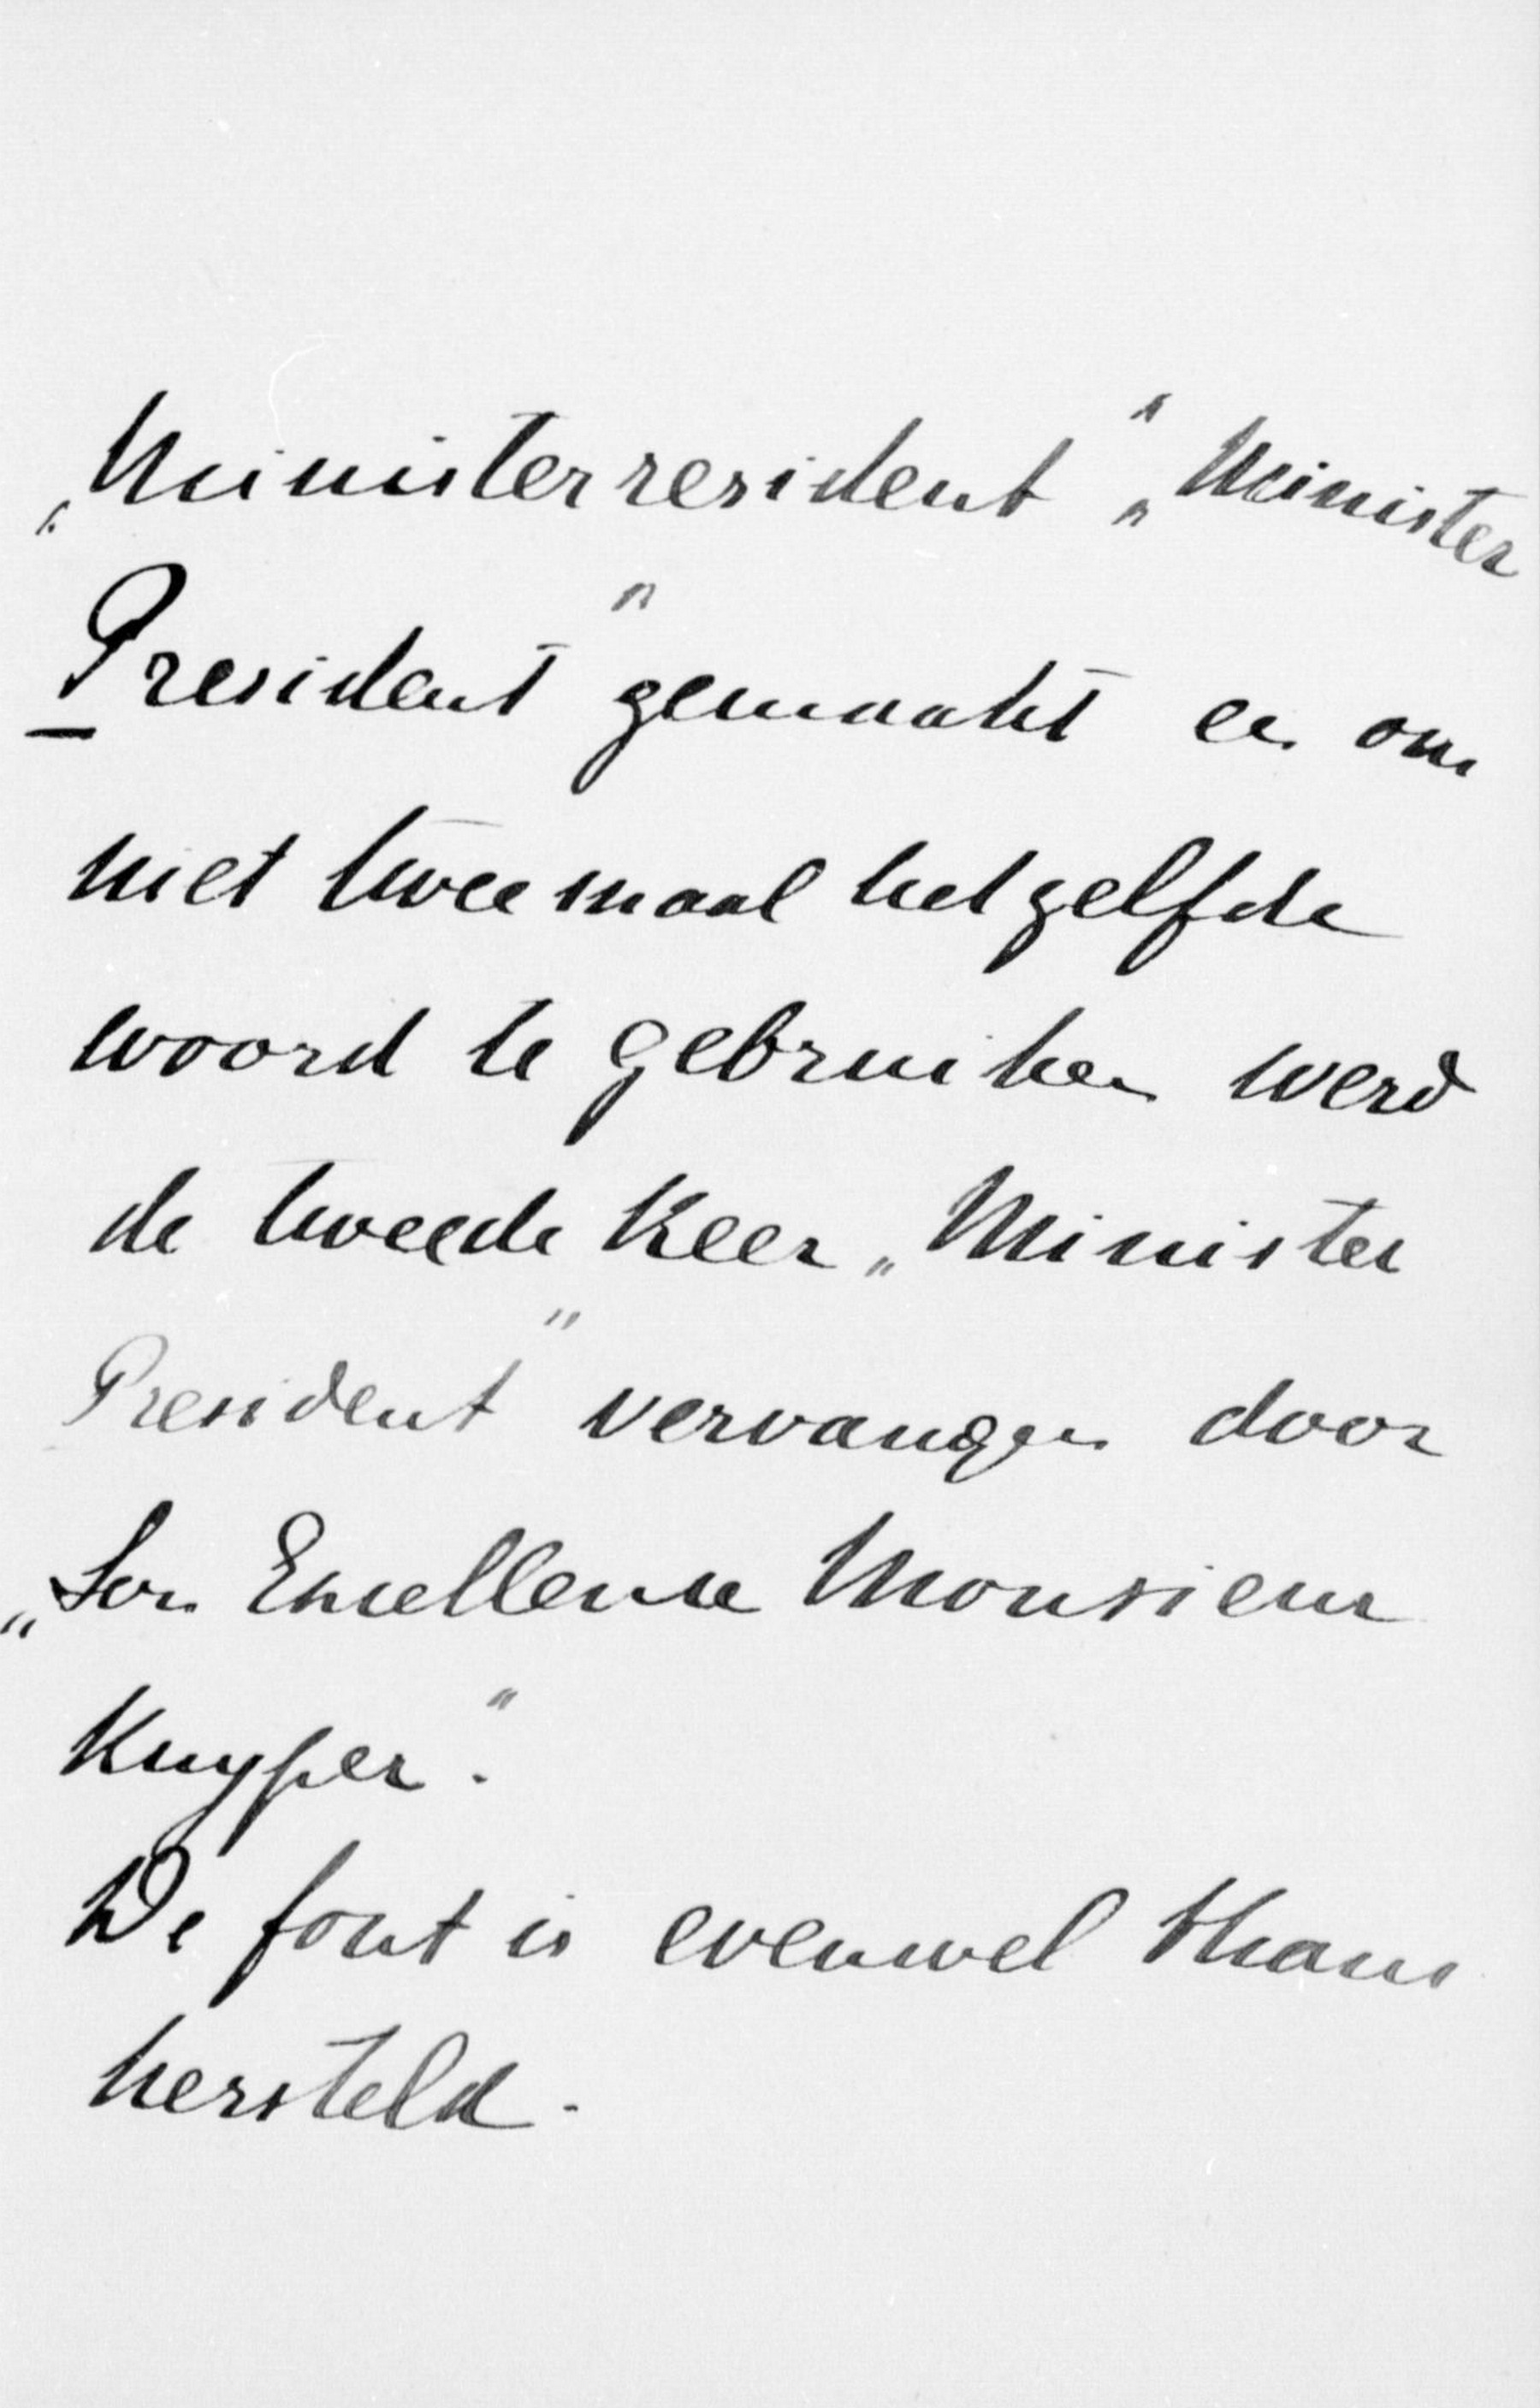 „Ministerresident” „Minister
President” gemaakt en om
niet tweemaal hetzelfde
woord te gebruiken werd
de tweede keer „Minister
President” vervangen door
„Son Excellence Monsieur
Kuyper.”
De fout is evenwel thans
hersteld.